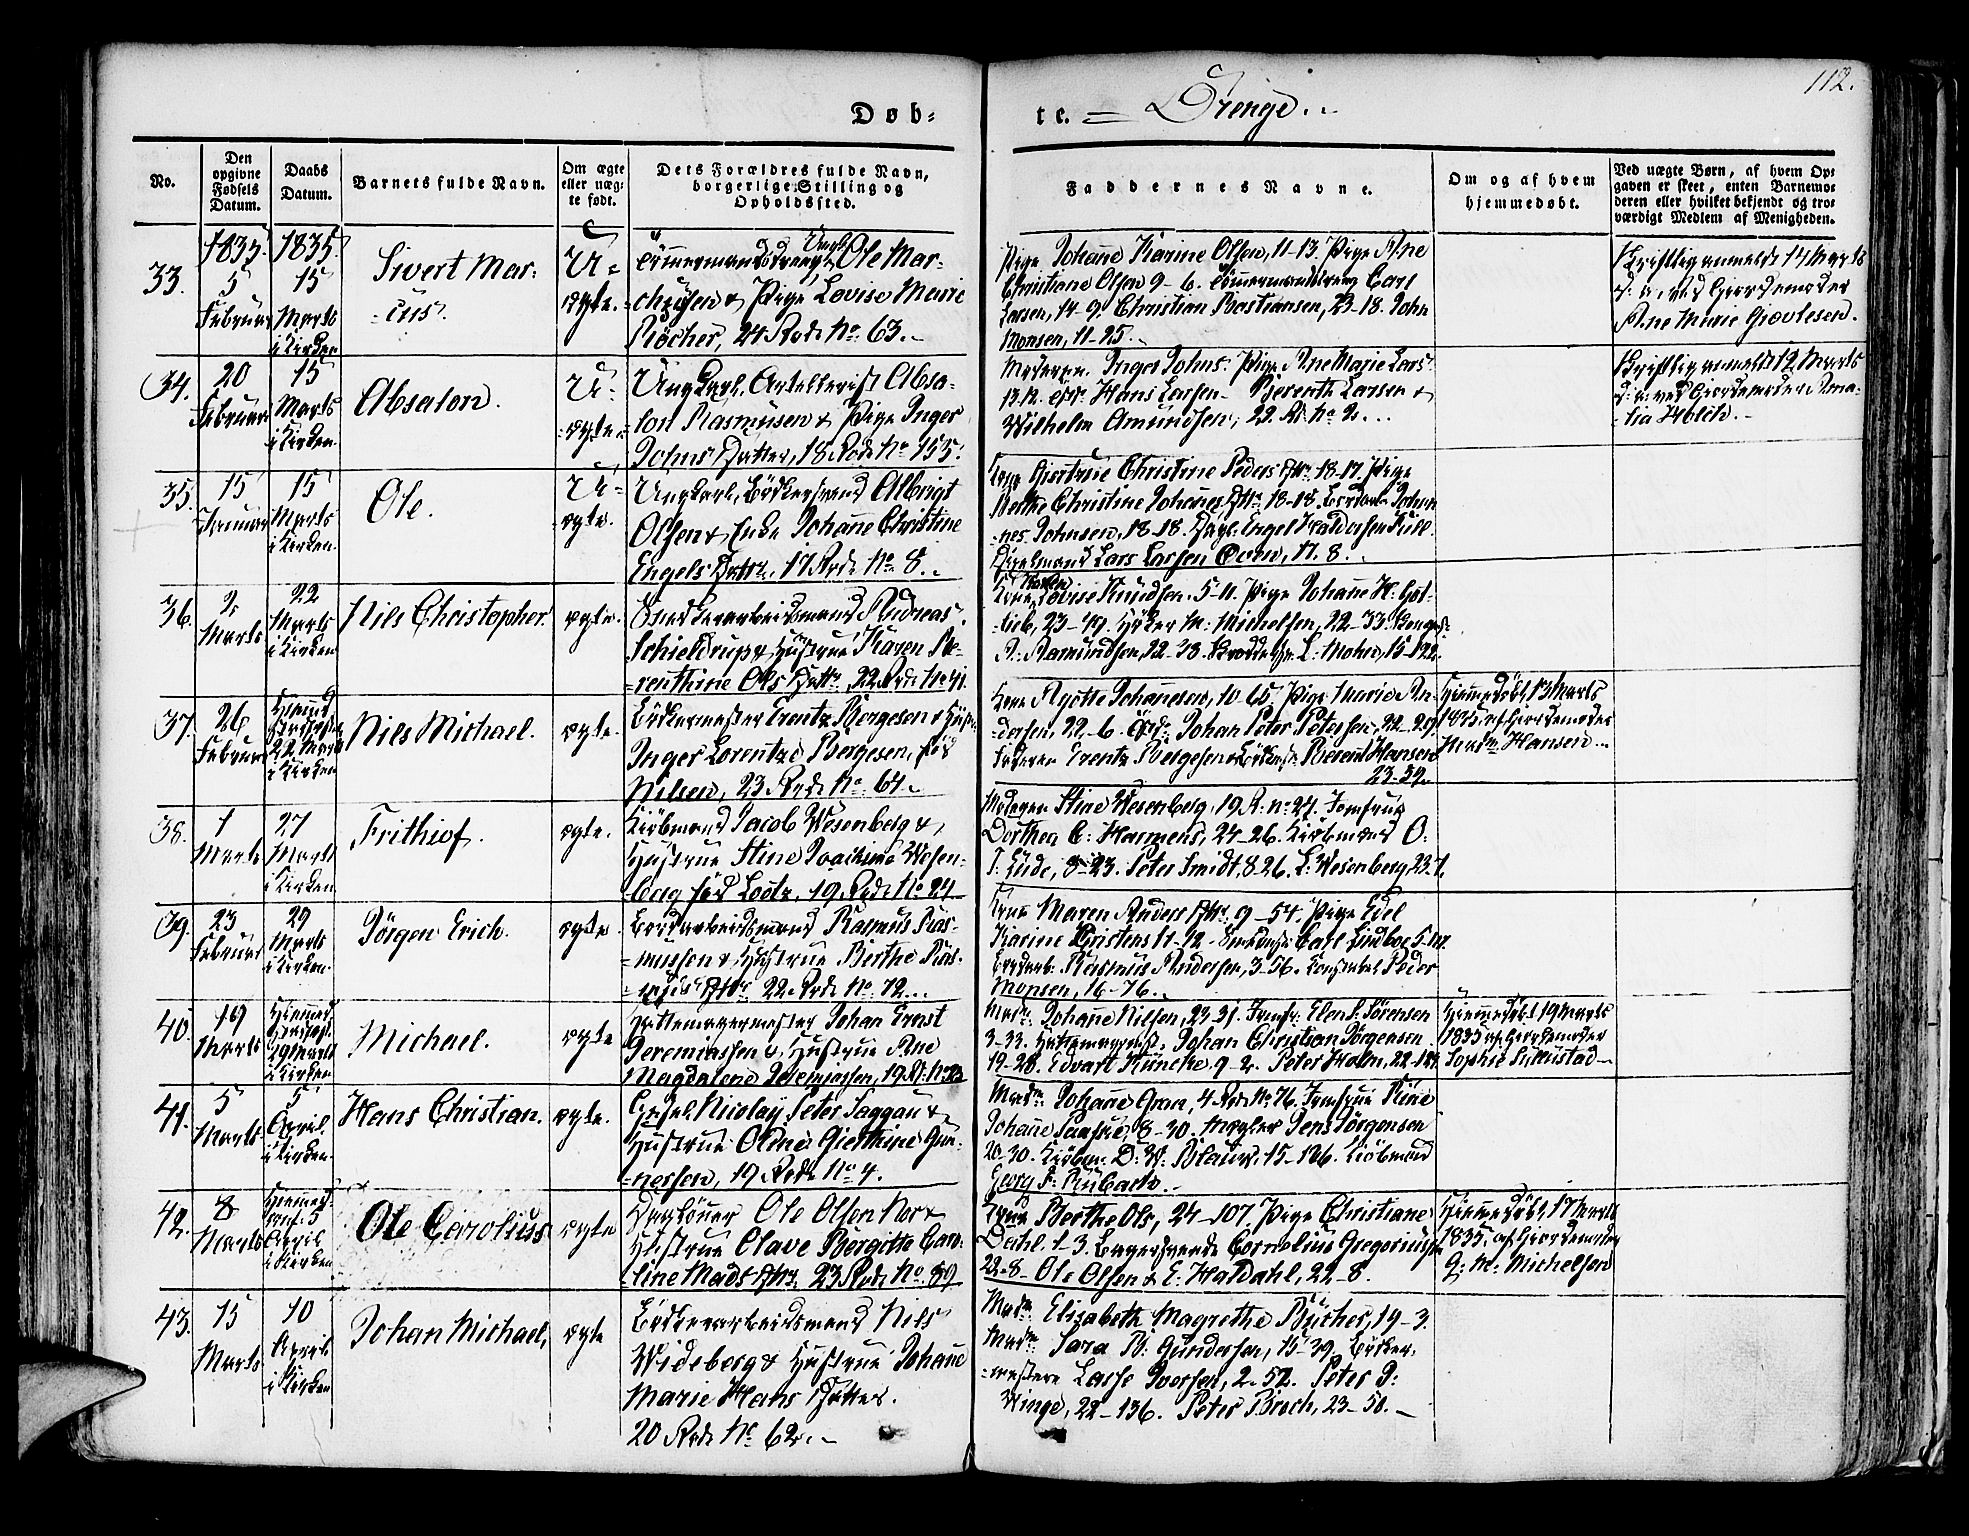 112.
Døb-
te. = Drenge.
No.
Den opgivne Fødsels Datum.
Daabs Datum.
Barnets fulde Navn.
Om ægte eller uægte født.
Dets Forældres fulde Navn, borgerlige Stilling og Opholdssted.
Faddernes Navne.
Om og af hvem hjemmedøbt.
Ved uægte Børn, af hvem Opgaven er skeet, enten Barnemoderen eller hvilket bekjendt og troværdigt Medlem af Menigheden.
33.
1835.
5
Februar
1835.
15
Marts
i Kirken
Sivert Mar-
-cus.
U-
ægte.
Ole Mar-
& Pige Lovise Marie
Röcher, 24 Rode No. 63.
Pige Johanne Karine Olsen, 11-13. Pige Ane
Christiane Olsen 9-6. Carl
Larsen, 14-9. Christian Bastiansen, 23-18. John
Monsen, 11-25.
Skriftlig anmeldt 14 Marts
d: a: ved Giordemoder
Ane Marie
34.
20
Februar
15
Marts
i Kirken.
Absalon.
U-
-ægte.
Ungkarl, Artillerist Absa-
-lon Rasmusen & Pige Inger
Johns Datter, 18 Rode No. 155.
Moderen Inger Johns. Pige Ane Marie Lars.
Hans Larsen. Berenth Larsen &
Wilhelm Amundsen, 22. R. No. 2.
Skriftlig anmeldt 12 Marts
d: a: ved Giordemoder Ama-
-lia Holch.
35.
15
Januar
15
Marts
i Kirken.
Ole.
U-
ægte.
Ungkarl, Bödkersvend Albrigt
Olsen & Enke Johanne Christine
Engels Dattr. 17 Rode No. 8.
Kone Giertrue Christine Peders Dttr. 18-17. Pige
Berthe Christine Johannes Dttr. 18-18. Johan-
-nes Johnsen, 18-18. Engel Haldorsen
Lars Larsen 17. 8.
36.
2
Marts
22
Marts
i Kirken
Nils Christopher.
ægte.
Andreas
Schieldrup & Hustrue Karen Be-
-renthine Ols Dattr. 22 Rode No. 41.
Kone Lovise Knudsen, 5-11. Pige Johanne H. Got-
-lieb, 23-49. Höker M: Michelsen, 22-33.
R: Ramundsen, 22-38. L: Mohn, 15-122.
37.
26
Februar
22 Marts
i Kirken
Nils Michael.
ægte.
Bödkermester Erentz Borgesen & Hustr.
Inger Lorentze Börgesen, föd
Nilsen, 23 Rode No. 64.
Kone Agotte Johannesen, 10-65. Pige Marie An-
dersen, 22-6. Johan Peter Petersen, 22-29.
Faderen Erentz Borgesen Berent Hansen
23-52.
Hiemmedöbt 13 Marts
1835, af Giordemoder
Madm. Hansen
38.
1
Marts
27
Marts
i Kirken
Frithiof.
ægte.
Kiöbmand Jacob Wesenberg &
Hustrue Stine Joachime Wesen-
-berg föd Lootz, 19 Rode No. 24
Moderen Stine Wesenberg, 19 R. No. 24. Jomfrue
Dorthea C: Harmens, 24-26. Kiöbmænd O:
T: Eide, 8-23. Peter Smidt, 8-26. L: Wesenberg, 23-7.
39.
23
Februar
29
Marts
i Kirken.
Jörgen Erich.
ægte.
Rasmus Ras-
-mussen & Hustrue Berthe Ras-
-mus Dttr. 22 Rode No. 72.
Kone Maren Anders Dttr. 9-54. Pige Edel
Karine Kristens 11-12. Carl Lindboe 5-
Rasmus Andersen, 3-56. Peder
Monsen, 16-76.
40.
19
Marts
29 Marts
i Kirken
Michael.
ægte
Hattemagermester Johan Ernst
Jeremiassen & Hustrue Ane
Magdalene Jeremiassen, 19 R: No.
Madm. Johanne Nilsen, 23-31. Jomfr: Elen S. Sörensen
3-33. Johan Christian Jörgensen
19-28. Edvart Küncke, 9-2. Peter Holm, 22-
Hiemmedöbt 19 Marts
1835 af Giordemoder
Sophie
41.
5
Marts
5
April
i Kirken.
Hans Christian.
ægte.
Nicolay Peter Saggau &
Hustrue Oline Gierthine Gun-
-nersen, 19 Rode No. 4.
Madm. Johanne Gran, 4 Rode No. 76. Jomfrue Rine
Johanne 8-30. Mægler Jens Jörgensen
20-30. Kiöbm: D: W: Blauw, 15-126. Kiöbmand
Georg F: Rubach.
42.
8
Marts
5
April
i Kirken
Ole Carolius
ægte
Daglönner Ole Olsen Nor &
Hustrue Olave Bergitte Caro-
-line Mads Dttr. 23 Rode No. 89
Kone Berthe Ols, 24-107. Pige Christiane
1-3. Bagersvende Cornelius Gregoriussen
22-8. Ole Olsen & E: Haldahl, 22-8.
Hiemmedöbt 17 Marts
1835, af Giordemoder
G: M: Michelsen
43.
15
Marts
10
April
i Kirken
Johan Michael,
ægte
Bödkerarbeidsmand Nils
Wideberg & Hustrue Johanne
Marie Hans Datter.
20 Rode No. 62.
Madm. Elizabeth Magrethe Bücher, 19-3.
Madm. Sara B: Gundersen, 15-39. Bödker-
-mestere Lasse Iversen, 2-52. Peter D:
Winge, 22-136. Peter Broch, 23-50.